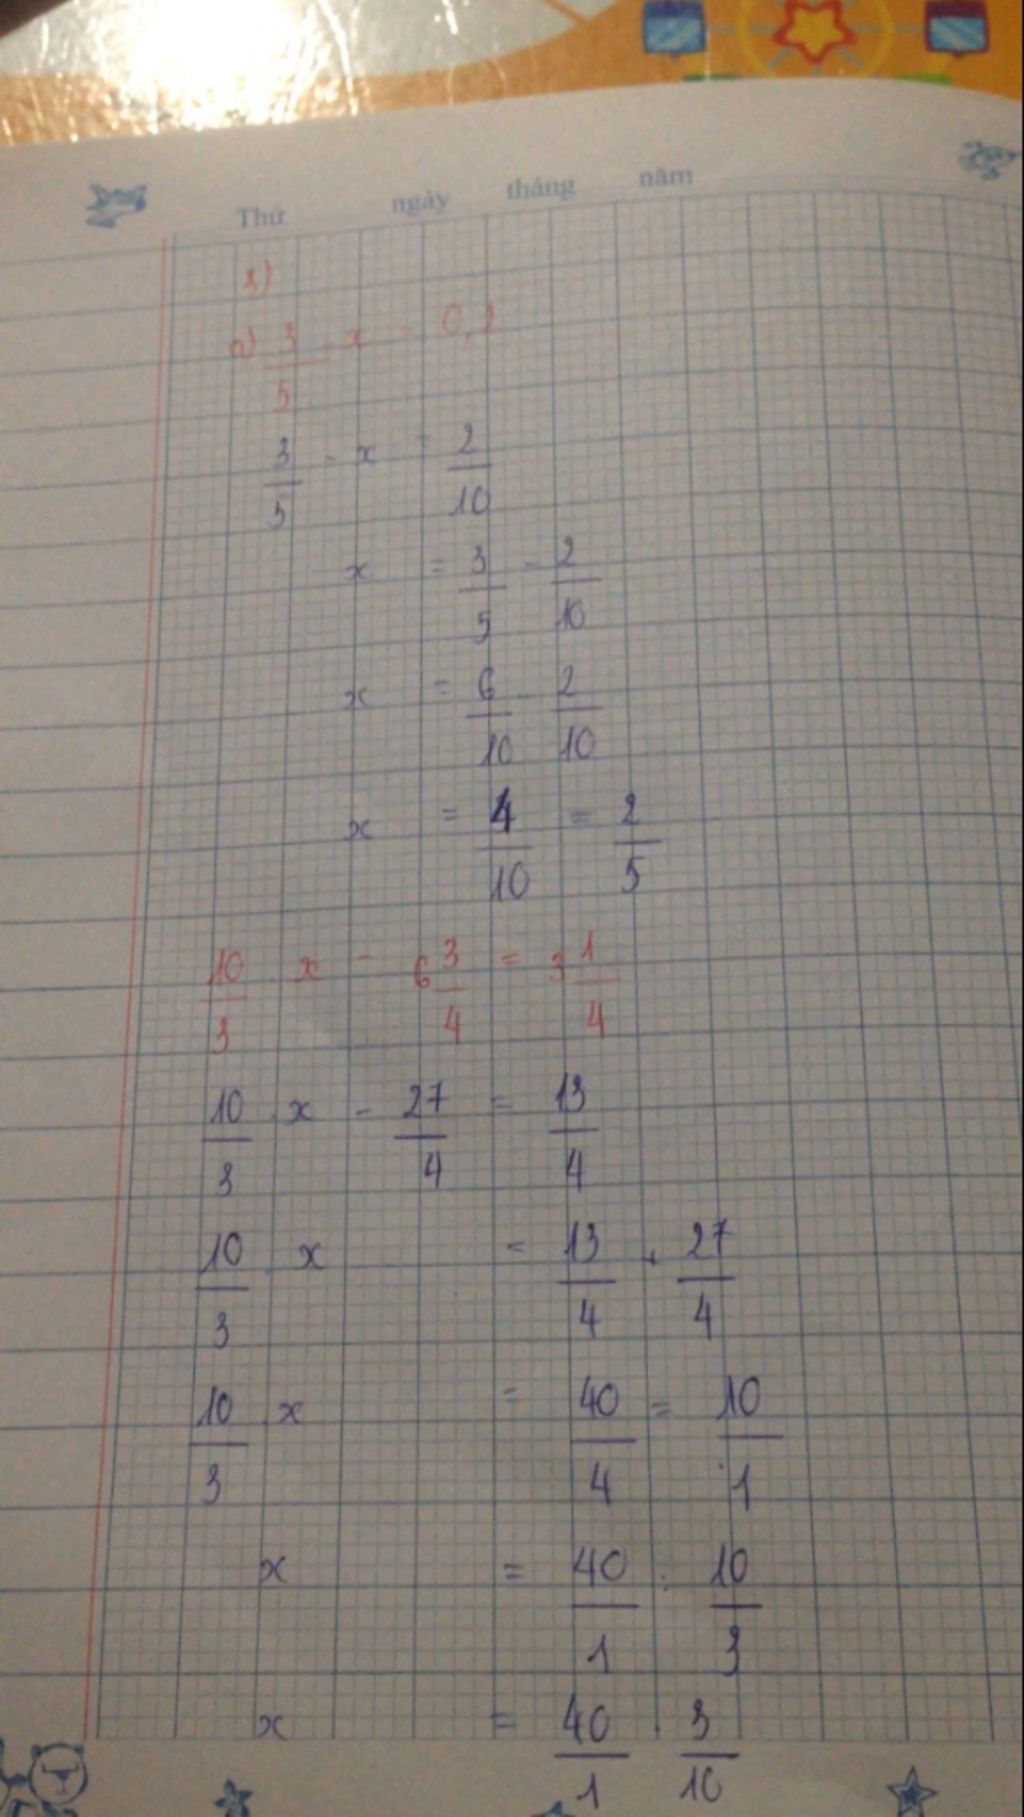 Thứ ngày tháng năm
1)
a) 3/5 - x = 0,2
3/5 - x = 2/10
x = 3/5 - 2/10
x = 6/10 - 2/10
x = 4/10 = 2/5
10/3 . x - 6 3/4 = 3 1/4
10/3 . x - 27/4 = 13/4
10/3 . x = 13/4 + 27/4
10/3 . x = 40/4 = 10/1
x = 40/1 : 10/3
x = 40/1 . 3/10